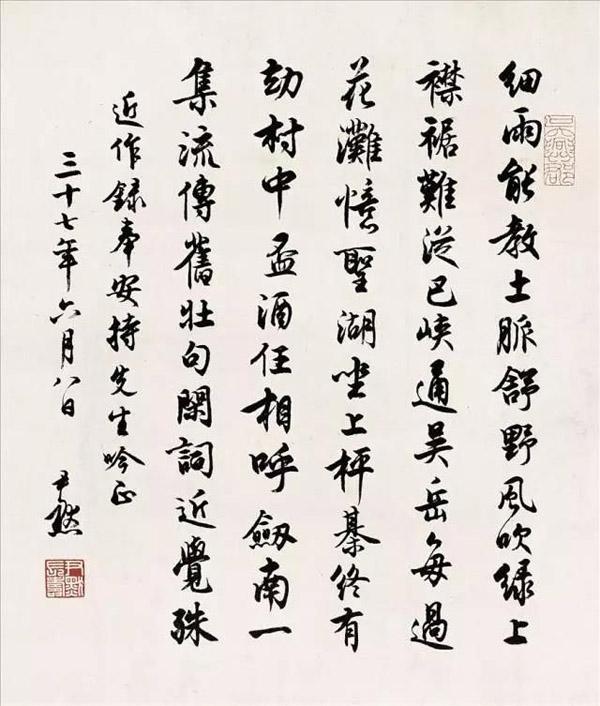 細雨能教土脈舒野風吹綠上
襟裾難從巴峽通吳岳每過
花灘憶聖湖坐上枰棊終有
劫村中盃酒任相呼劔南一
集流傳舊壯句閑詞近覺殊
近作録奉安持先生吟正
三十七年六月八日 尹默